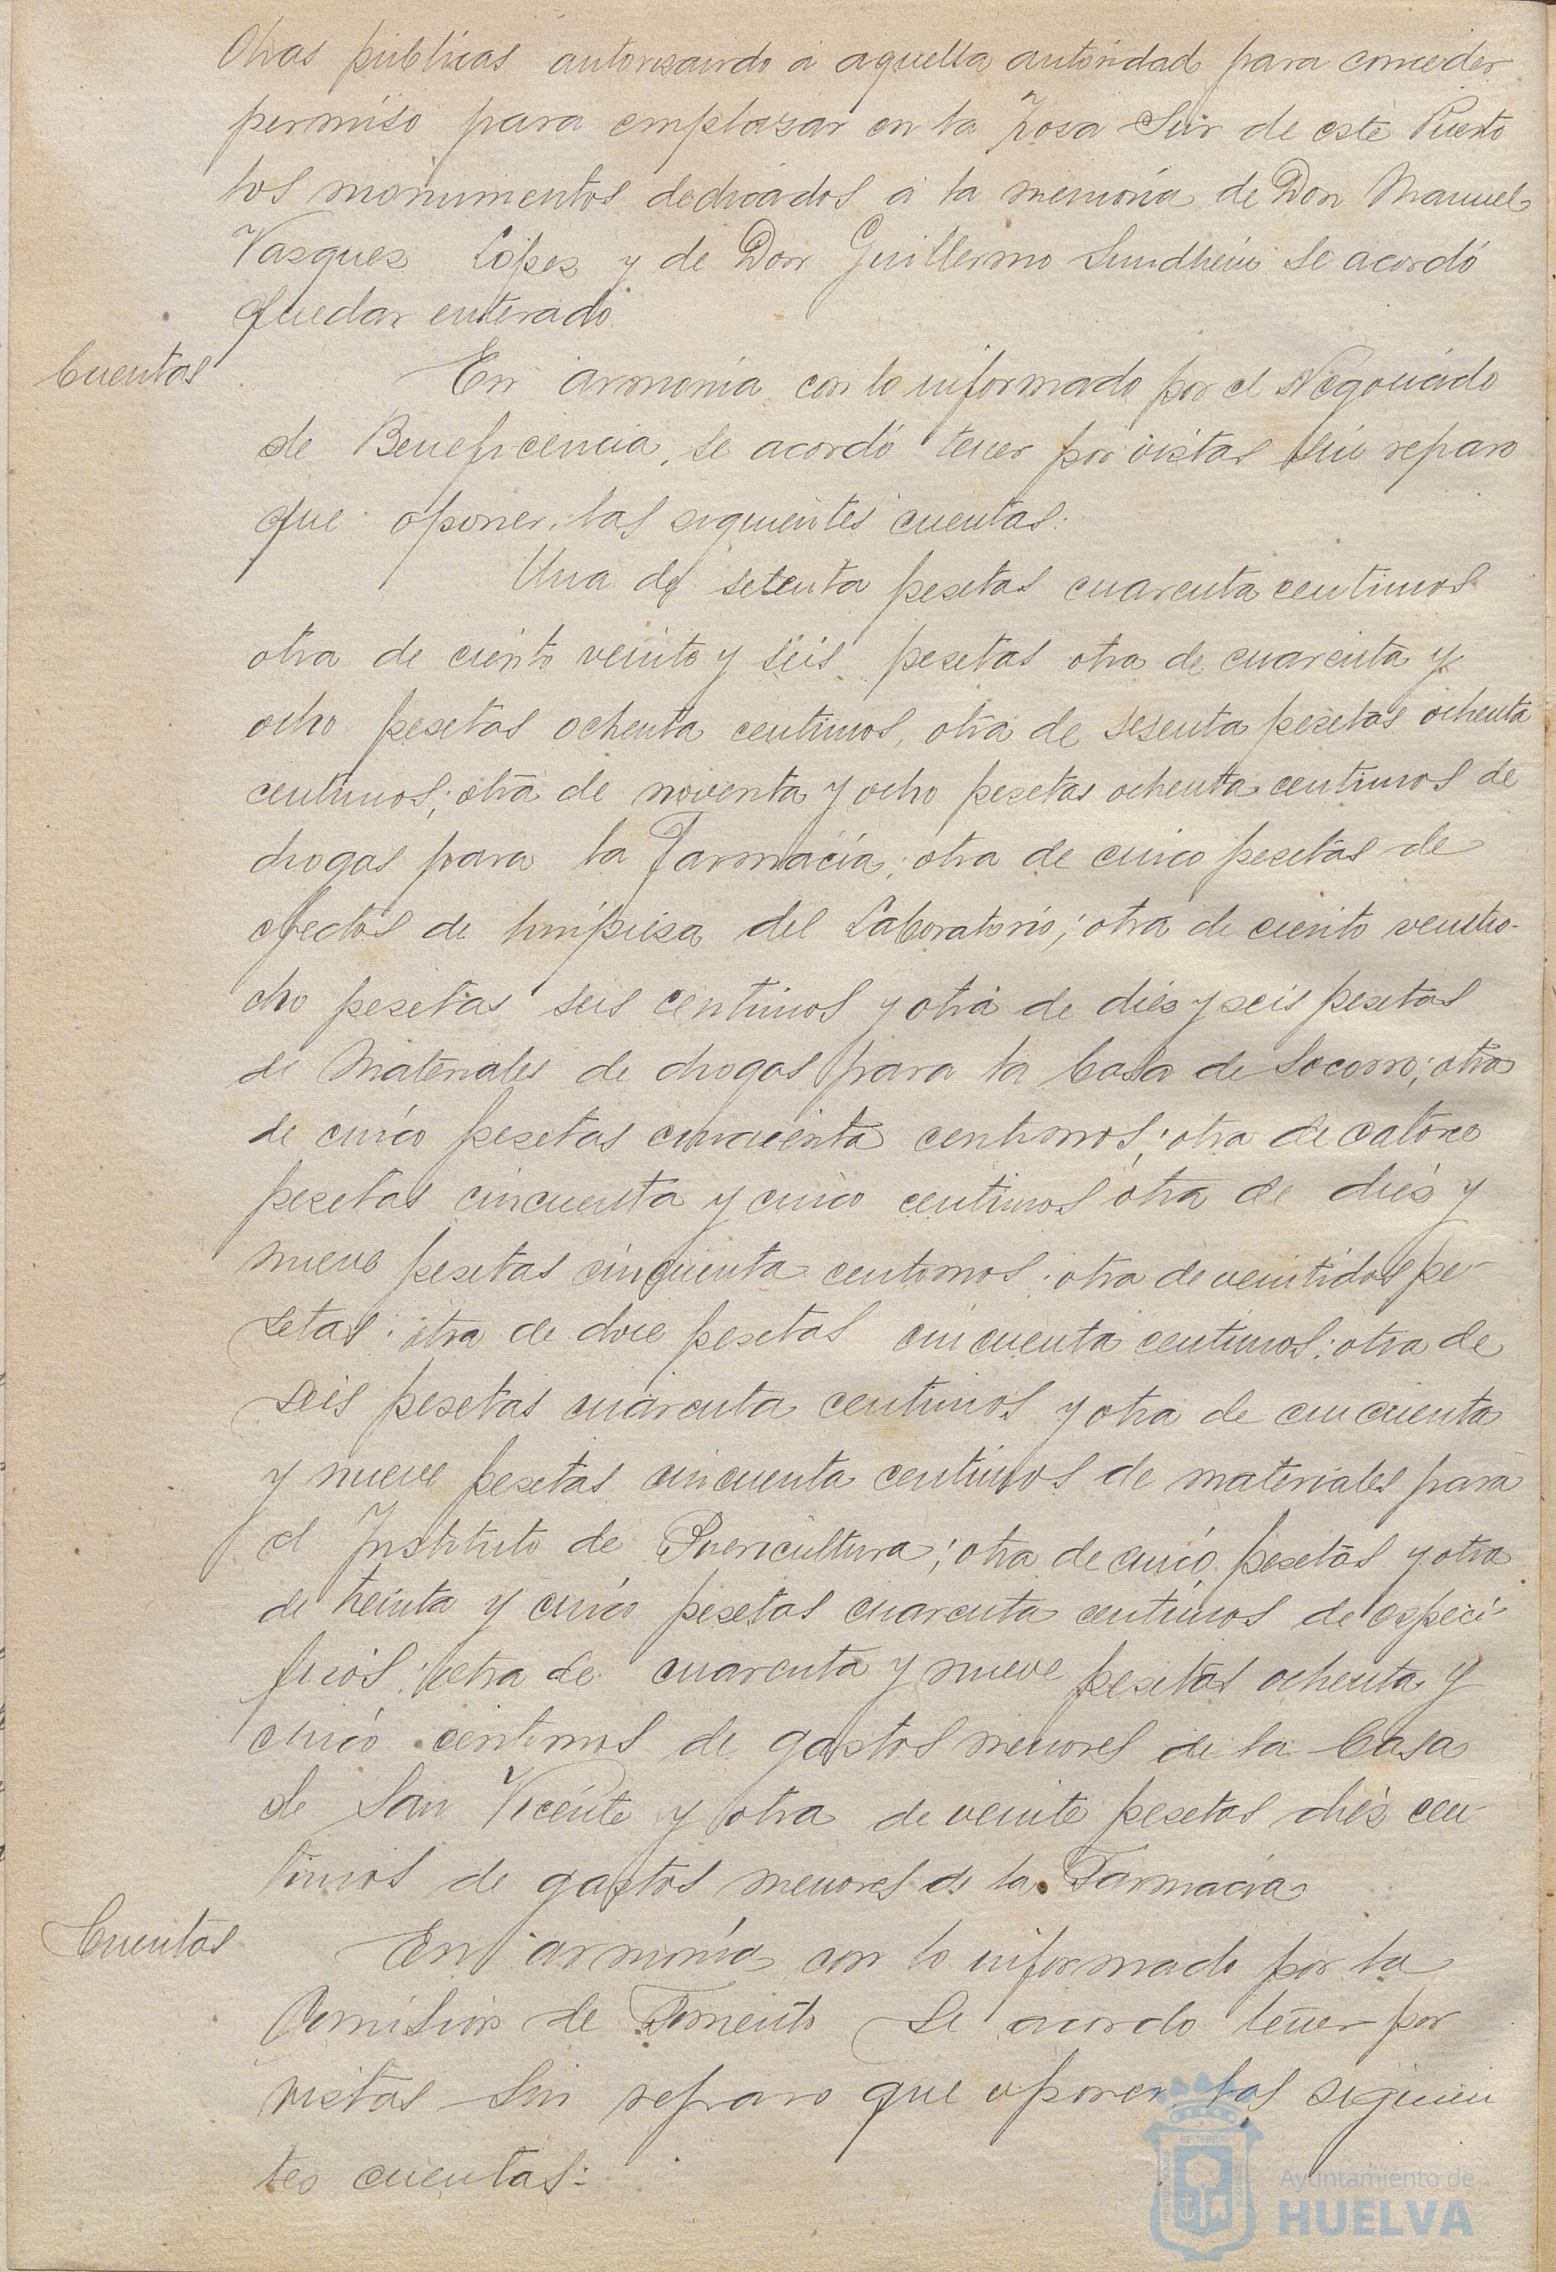 Obras públicas autorizando á aquella autoridad para conceder
permiso para emplazar en la Zona Sur de este Puerto
los monumentos dedicados á la memoria de Don Manuel
Vazquez López y de Don Guillermo Sundhein se acordó
quedar enterado.
Cuentas
En armonía con lo informado por el Negociado
de Beneficencia, se acordó tener por vistas sin reparo
que oponer, las siguientes cuentas:
Una de setenta pesetas cuarenta centimos
otra de ciento veinte y seis pesetas otra de cuarenta y
ocho pesetas ochenta centimos, otra de sesenta pesetas ochenta
centimos; otra de noventa y ocho pesetas ochenta centimos de
drogas para la Farmacia; otra de cinco pesetas de
efectos de limpieza del Laboratorio; otra de ciento ventio-
cho pesetas seis centimos y otra de diés y seis pesetas
de Materiales de drogas para la Casa de Socorro; otra
de cinco pesetas cincuenta centimos; otra de catorce
pesetas cincuenta y cinco centimos otra de diés y
nueve pesetas cincuenta centimos; otra de veintidos pe-
setas; otra de doce pesetas cincuenta centimos; otra de
seis pesetas cuarenta centimos y otra de cincuenta
y nueve pesetas cincuenta centimos de materiales para
el Instituto de Puericultura; otra de cinco pesetas y otra
de treinta y cinco pesetas cuarenta centimos de especi-
ficos; otra de cuarenta y nueve pesetas ochenta y
cinco centimos de gastos menores de la Casa
de San Vicente y otra de veinte pesetas diés cen-
timos de gastos menores de la Farmacia
Cuentas
En armonía con lo informado por la
Comision de Fomento se acordo tener por
vistas sin reparo que oponer las siguien
tes cuentas:
Ayuntamiento de
HUELVA